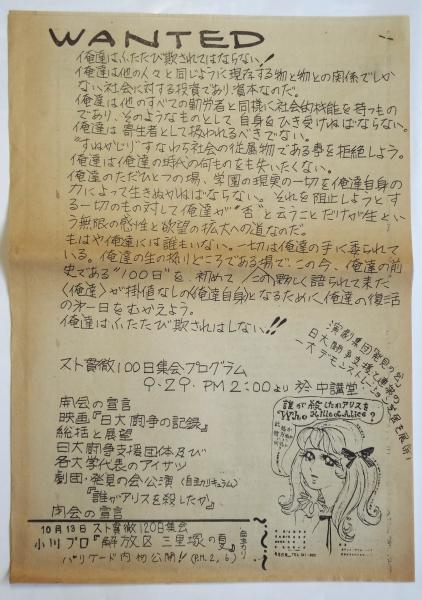 WANTED
俺達はふたたび欺されてはならない!
俺達は他の人々と同じように現存する物と物との関係でしか
ない社会に対する投資であり資本なのだ。
俺達は他のすべての勤労者と同様に社会的機能を持つもの
であり、そのようなものとして自身をひき受けねばならない。
俺達は寄生者として扱われるべきでない。
“すねかじり”すなわち社会の従属物である事を拒絶しよう。
俺達は俺達の時代の何ものをも失いたくない。
俺達のただひとつの場、学園の現実の一切を俺達自身の
力によって生きぬかねばならない。それを阻止しようとす
る一切のもの対して俺達が“否”と云うことだけが生とい
う無限の感性と欲望の拡大への道なのだ。
もはや俺達には誰もいない。一切は俺達の手に委られて
いる。俺達の生の拠りどころである場で、この今、俺達の前
史である“100日”を、初めて
語られて来た
〈俺達〉が掛値なしの〈俺達自身〉となるために、俺達の復活
の第一日をむかえよう。
俺達はふたたび欺されはしない!!
スト貫徹100日集会プログラム
9.29. PM2:00より 於 中講堂
開会の宣言
映画『日大闘争の記録』
総括と展望
日大闘争支援団体及び
各大学代表のアイサツ
劇団・発見の会公演〈自主カリキュラム〉
『誰がアリスを殺したか』
閉会の宣言
演劇集団発見の会
日大闘争支援
デモンストレーション
誰が殺したかアリスを
Who Killed Alice?
10月13日 スト貫徹120日集会
小川プロ『解放区 三里塚の夏』
バリケード内初公開!! (P.M. 2, 6)